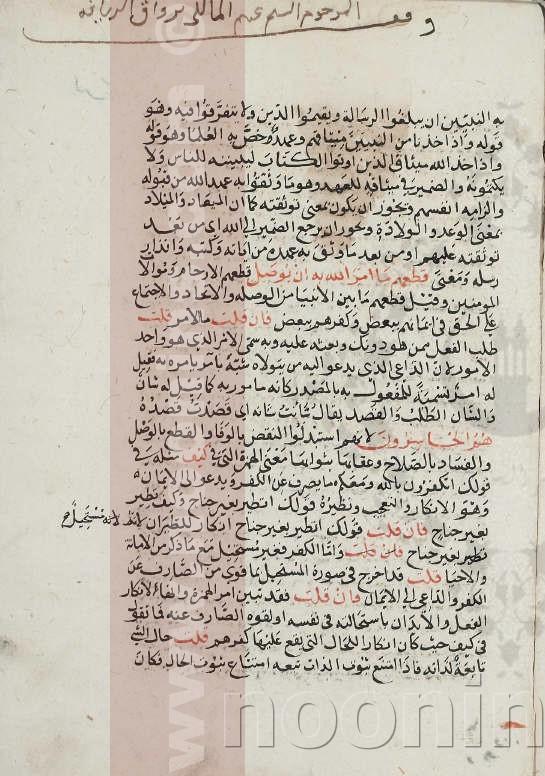 المرحوم السيد المالكي برواق
وقف
به النبيين ان يبلغوا الرسالة ويقيموا الدين ولا يتفرقوا فيه وهو
قوله واذ اخذنا من النبيين ميثاقهم وعهد خص به العلما وهو قوله
واذ اخذ الله ميثاق الذين اوتوا الكتاب ليبيننه للناس ولا
يكتمونه والضمير في ميثاقه للعهد وهو ما وثقوا به عهد الله من قبوله
والزامه انفسهم ويجوز ان يكون بمعنى توثقته كما ان الميعاد والميلاد
بمعنى الوعد والولادة ويجوز ان يرجع الضمير الى الله اي من بعد
توثقته عليهم او من بعد ما وثق به عهده من اياته وكتبه وانذار
رسله ومعنى قطعهم ما امر الله به ان يوصل قطعهم الارحام وموالاة
المومنين وقيل قطعهم ما بين الانبيا من الوصلة والاتحاد والاجتماع
على الحق في ايمانهم ببعض وكفرهم ببعض فان قلت ما الامر قلت
طلب الفعل ممن هو دونك وبعثه عليه وبه سمى الامر الذي هو واحد
الامور لان الداعي الذي يدعو اليه من يتولاه شبه بآمر يامره به فقيل
له امر تسمية للمفعول به بالمصدر كانه مامور به كما قيل له شأن
والشان الطلب والقصد يقال شأنت شأنه اي قصدت قصده
هم الخاسرون لانهم استبدلوا النقض بالوفا والقطع بالوصل
والفساد بالصلاح وعقابها بثوابها معنى الهمزة التي في كيف مثله في
قولك اتكفرون بالله ومعكم ما يصرف عن الكفر ويدعو الى الايمان
وهو الانكار والتعجب ونظيره قولك اتطير بغير جناح وكيف تطير
بغير جناح فان قلت قولك اتطير بغير جناح انكار للطيران لانه مستحيل
بغير جناح فان قلت واما الكفر فغير مستحيل مع ما ذكر من الاماتة
والاحيا قلت قد اخرج في صورة المستحيل لما قوى من الصارف عن
الكفر والداعي الى الايمان فان قلت فقد تبين امر الهمزة وانها لانكار
الفعل والايذان باستحالته في نفسه او لقوة الصارف عنه فما تقول
في كيف حيث كان انكارا للحال التي يقع عليها كفرهم قلت حال الشي
تابعة لذاته فاذا امتنع ثبوت الذات تبعه امتناع ثبوت الحال فكان
noonin